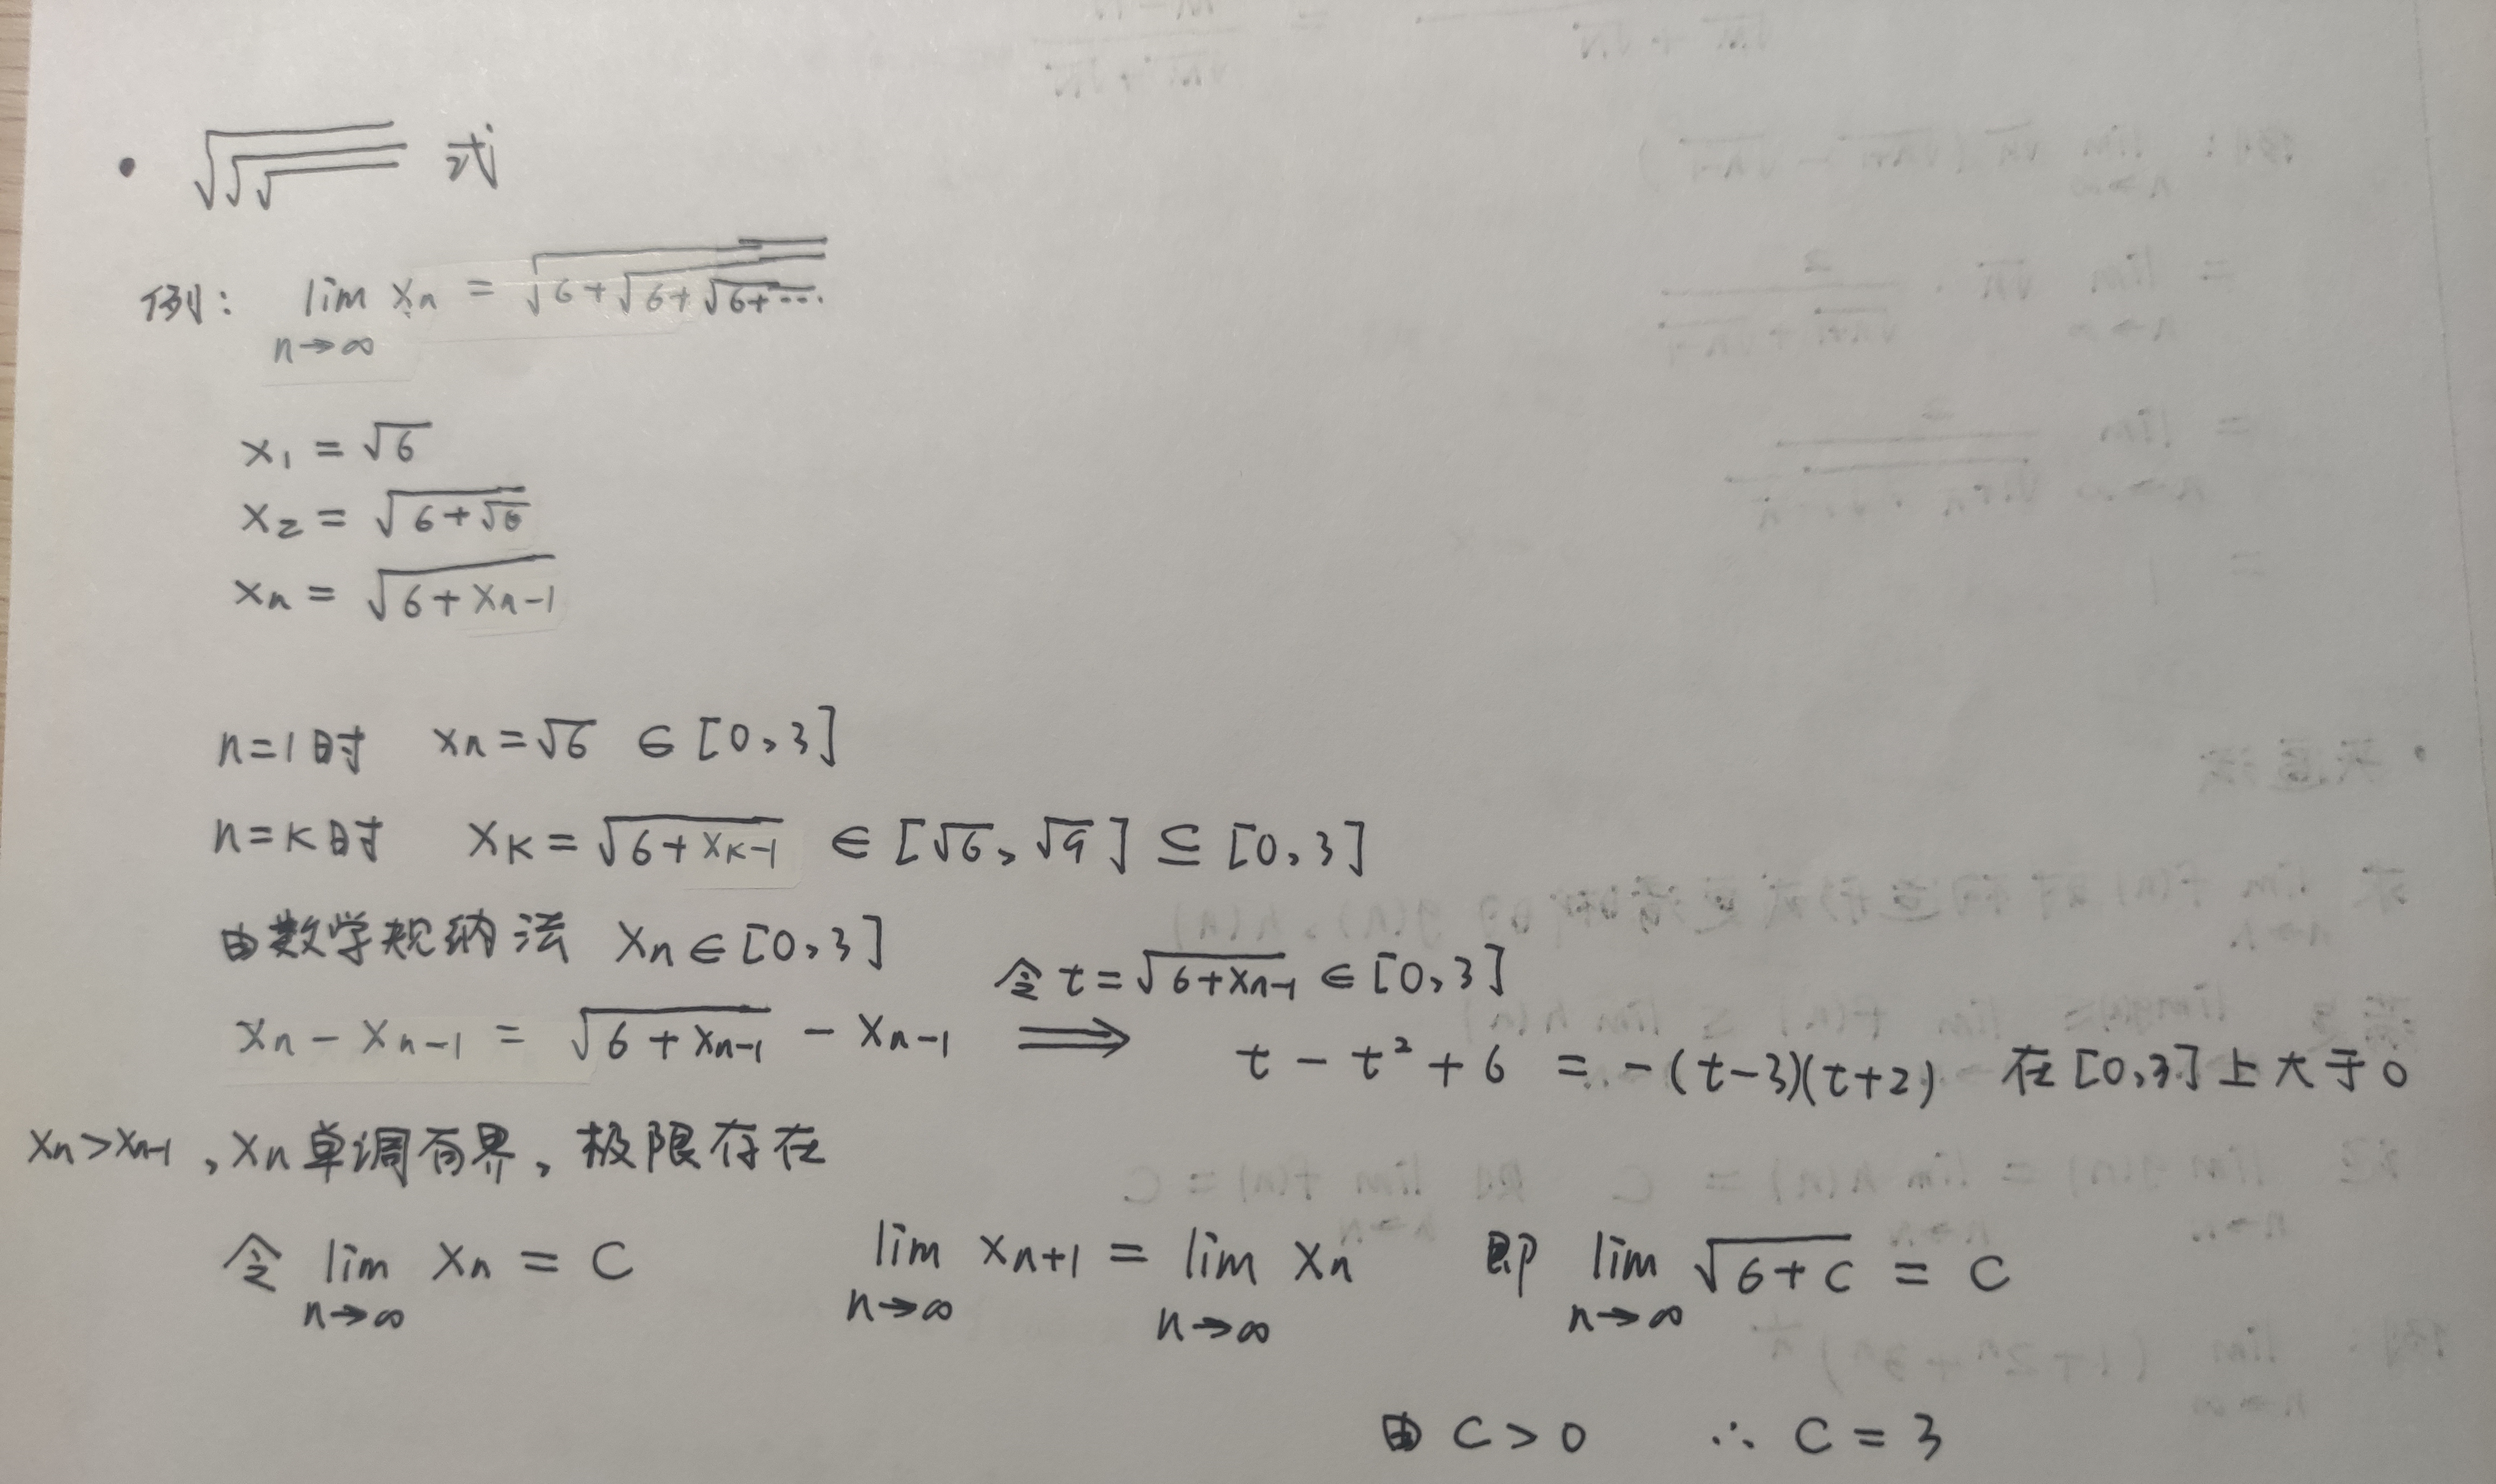 • √√√ 式
例: lim n→∞ xn = √(6+√(6+√(6+···
x₁ = √6
x₂ = √(6+√6)
xn = √(6+xn-1)
n=1时 xn=√6 ∈ [0,3]
n=k时 xk=√(6+xk-1) ∈ [√6,√9] ⊆ [0,3]
由数学规纳法 xn∈[0,3]
令 t=√(6+xn-1) ∈ [0,3]
xn - xn-1 = √(6+xn-1) - xn-1 ⟹ t - t² + 6 = -(t-3)(t+2) 在[0,3]上大于0
xn>xn-1, xn单调有界, 极限存在
令 lim n→∞ xn = C lim n→∞ xn+1 = lim n→∞ xn 即 lim n→∞ √(6+C) = C
由 C>0 ∴ C = 3